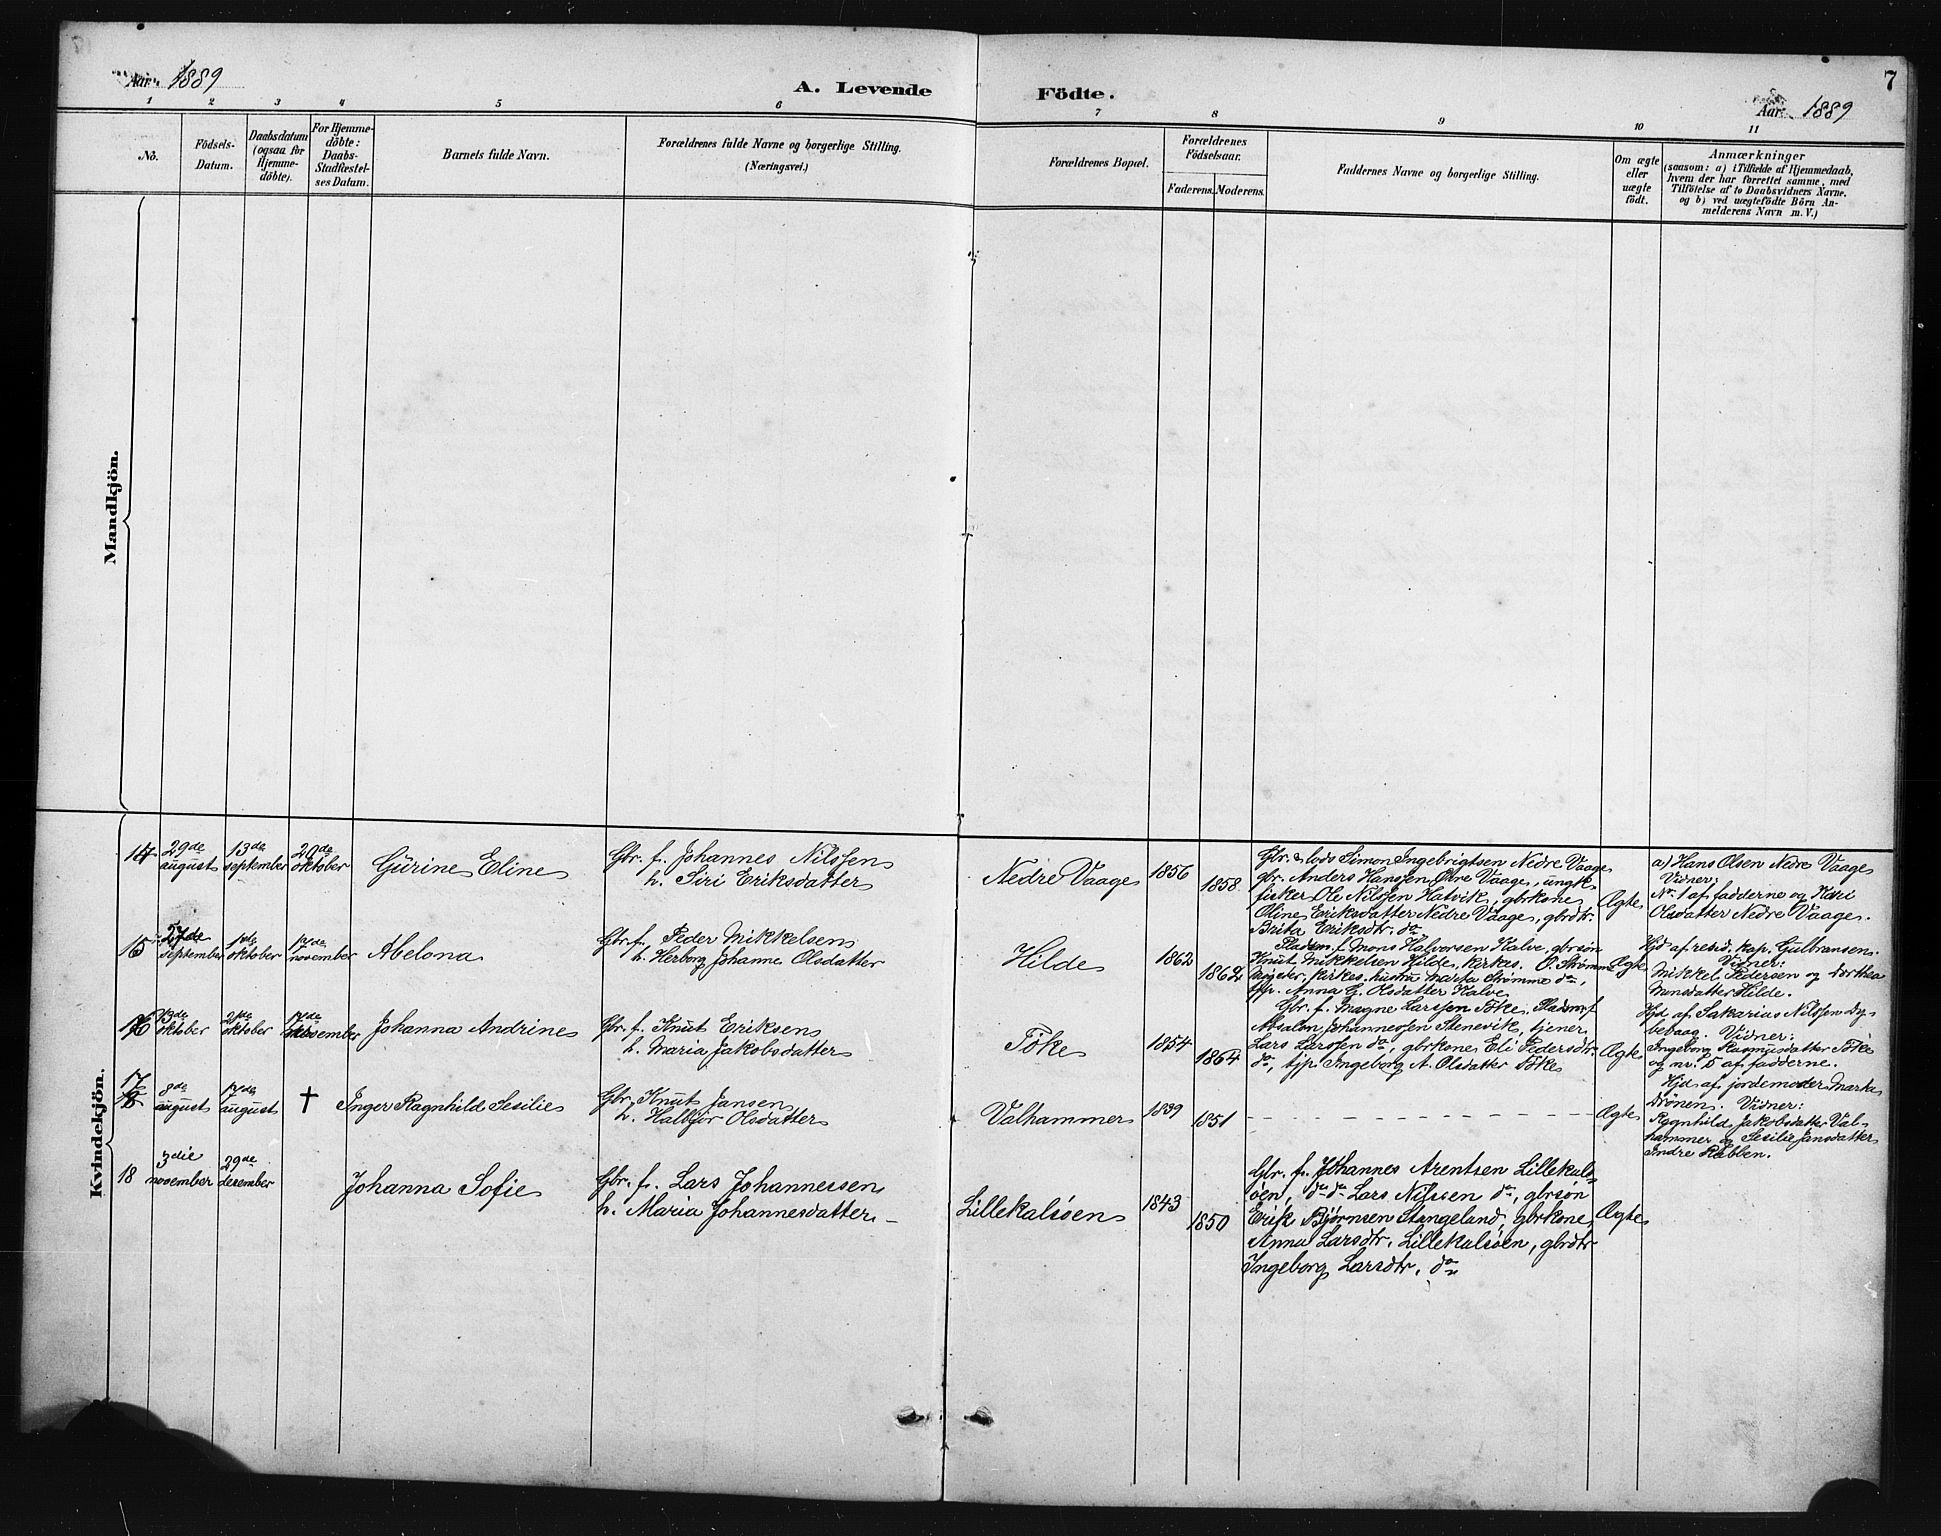 Aar 1889
A. Levende Födte.
7
Aar 1889
1 2 3 4 5 6 7 8 9 10 11
No.
Födsels-
Datum.
Daabsdatum
(ogsaa for
Hjemme-
döbte).
For Hjemme-
döbte:
Daabs-
Stadfæstel-
ses Datum.
Barnets fulde Navn.
Forældrenes fulde Navne og borgerlige Stilling.
(Næringsvei.)
Forældrenes Bopæl.
Forældrenes
Födselsaar.
Faderens. Moderens.
Faddernes Navne og borgerlige Stilling.
Om ægte
eller
uægte
født.
Anmærkninger
(saasom: a) i Tilfælde af Hjemmedaab,
hvem der har forrettet samme, med
Tilføielse af to Daabsvidners Navne.
og b) ved uægtefödte Börn An-
melderens Navn m. V.)
Mandkjön.
Kvindekjön.
14
29de
august
13de
september
20de
oktober
Gürine Eline
Gbr. f. Johannes Nilssen
h. Siri Eriksdatter
Nedre Vaage
1856
1858
Gbr. & lods Simon Ingebrigtsen Nedre Vaage
gbr. Anders Hanssen Øvre Vaage, ungk.
fisker Ole Nilssen Hatvik, gbrkone
Oline Eriksdatter Nedre Vaage, gbrdtr.
Brita Eriksdtr. do
Ægte
a) Hans Olsen Nedre Vaage
Vidner:
Nr. 1 af fadderne og Kari
Olsdatter Nedre Vaage.
15
27de
september
1ste
oktober
17de
november
Abelona
Gbr. f. Peder Mikkelsen
h. Herborg Johanne Olsdatter
Hilde
1862
1862
Pladsm. f. Mons Halvorsen Kalve, gbrsøn
Knut Mikkelsen Hilde, kirkes. O. Strømme
Møgster, kirkes. hustru Marta Strømme do,
tjp. Anna G. Olsdatter Kalve
Ægte
Hjd af resid. kap. Gulbransen.
Vidner:
Mikkel Pedersen og Dorthea
Monsdatter Hilde.
16
oktober
oktober
17de
november
Johanna Andrine
Gbr. f. Knut Eriksen
h. Maria Jakobsdatter
Føke
1854
1864
Gbr. f. Magne Larssen Føke, Pladsm. f.
Absalon Johannessen Stenevik, tjener
Lars Larssen do, gbrkone Eli Pedersdtr.
do, tjp. Ingeborg A. Olsdatter Føke
Ægte
Hjd af Sakarias Nilssen
bevaag. Vidner:
Ingeborg Rasmusdatter Føke
og nr. 5 af fadderne.
17
8de
august
17de
august
†
Inger Ragnhild Sesilie
Gbr. Knut Jansen
h. Halbjør Olsdatter
Valhammer
1839
1851
Ægte
Hjd af jordemoder Marta
Drønen. Vidner:
Ragnhild Jakobsdatter Val-
hammer og Sesilie Jansdatter
Indre Rabben.
18
3die
november
29de
desember
Johanna Sofie
Gbr. f. Lars Johannessen
h. Maria Johannesdatter
Lillekalsøen
1843
1850
Gbr. f. Johannes Arentsen Lillekals-
øen, do do Lars Nilssen do, gbrsøn
Erik Bjørnsen Stangeland, gbrkone
Anna Larsdtr. Lillekalsøen, gbrdtr
Ingeborg Larsdtr. do
Ægte